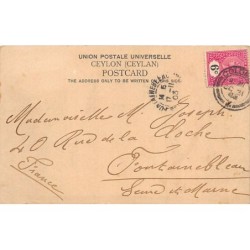 UNION POSTALE UNIVERSELLE
CEYLON (CEYLAN)
POSTCARD
THE ADDRESS ONLY TO BE WRITTEN
6c
Mademoiselle M. Joseph
40 Rue de la Cloche
Fontainebleau
Seine et Marne
France